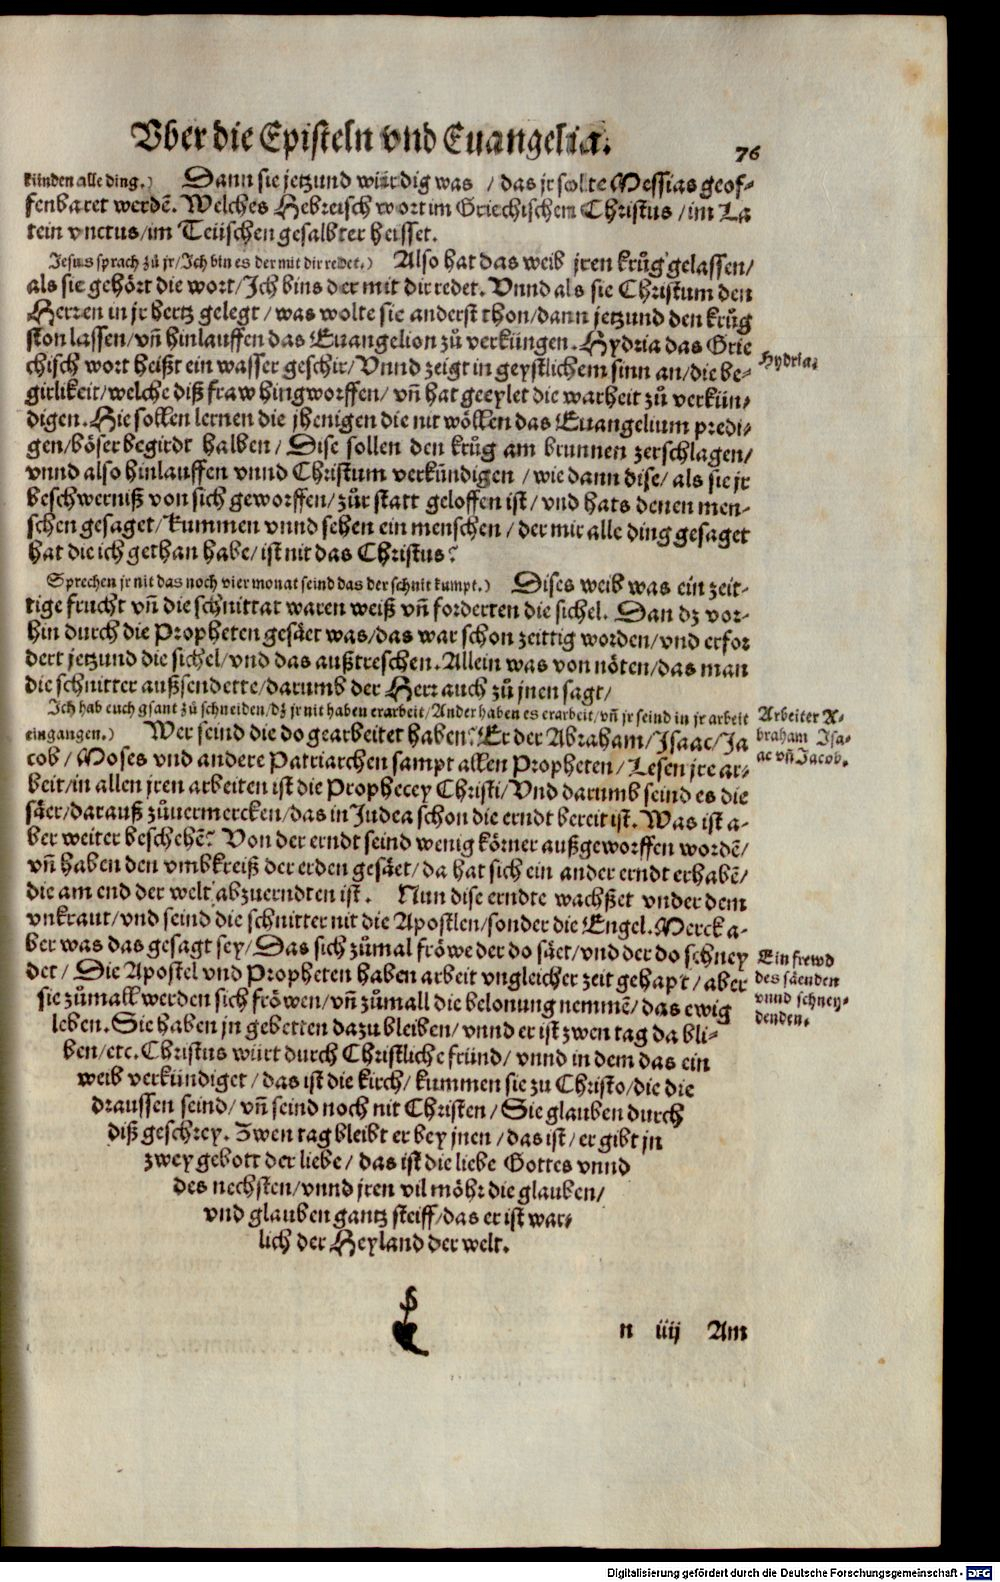 Vber die Episteln vnd Euangelia.
76
künden alle ding.) Dann sie jetzund würdig was / das jr solte Messias geof-
fenbaret werdē. Welches Hebreisch wort im Griechischem Christus / im La
tein vnctus / im Teütschen gesalbter heisset.
Jesus sprach zů jr / Ich bin es der mit dir redet.) Also hat das weib jren krůg gelassen /
als sie gehört die wort / Ich bins der mit dir redet. Vnnd als sie Christum den
Herren in jr hertz gelegt / was wolte sie anderst thon / dann jetzund den krůg
ston lassen / vñ hinlauffen das Euangelion zů verküngen. Hydria das Grie
chisch wort heißt ein wasser geschir / Vnnd zeigt in geystlichem sinn an / die be-
girlikeit / welche diß fraw hingworffen / vñ hat geeylet die warheit zů verkün-
digen. Hie sollen lernen die jhenigen die nit wöllen das Euangelium predi-
gen / böser begirdt halben / Dise sollen den krůg am brunnen zerschlagen /
vnnd also hinlauffen vnnd Christum verkündigen / wie dann dise / als sie jr
beschwerniß von sich geworffen / zůr statt geloffen ist / vnd hats denen men-
schen gesaget / kummen vnnd sehen ein menschen / der mir alle ding gesaget
hat die ich gethan habe / ist nit das Christus?
Hydria.
Sprechen jr nit das noch vier monat seind das der schnit kumpt.) Dises weib was ein zeit-
tige frucht vñ die schnittat waren weiß vñ forderten die sichel. Dan dz vor-
hin durch die Propheten gesäet was / das war schon zeittig worden / vnd erfor
dert jetzund die sichel / vnd das außtreschen. Allein was von nöten / das man
die schnitter außsendette / darumb der Herr auch zů jnen sagt /
Ich hab euch gsant zů schneiden / dz jr nit haben erarbeit / Ander haben es erarbeit / vñ jr seind in jr arbeit
eingangen.) Wer seind die do gearbeitet haben? Er der Abraham / Isaac / Ja
cob / Moses vnd andere Patriarchen sampt allen Propheten / Lesen jre ar-
beit / in allen jren arbeiten ist die Prophecey Christi / Vnd darumb seind es die
säer / darauß zůuermercken / das in Judea schon die erndt bereit ist. Was ist a-
ber weiter beschehē? Von der erndt seind wenig körner außgeworffen wordē /
vñ haben den vmbkreiß der erden gesäet / da hat sich ein ander erndt erhabē /
die am end der welt abzuerndten ist. Nun dise erndte wachßet vnder dem
vnkraut / vnd seind die schnitter nit die Apostlen / sonder die Engel. Merck a-
ber was das gesagt sey / Das sich zůmal fröwe der do säet / vnd der do schney
det / Die Apostel vnd Propheten haben arbeit vngleicher zeit gehapt / aber
sie zůmall werden sich fröwen / vñ zůmall die belonung nemmē / das ewig
leben. Sie haben jn gebetten da zu bleiben / vnnd er ist zwen tag da bli-
ben / etc. Christus würt durch Christliche fründ / vnnd in dem das ein
weib verkündiget / das ist die kirch / kummen sie zu Christo / die die
draussen seind / vñ seind noch nit Christen / Sie glauben durch
diß geschrey. Zwen tag bleibt er bey jnen / das ist / er gibt jn
zwey gebott der liebe / das ist die liebe Gottes vnnd
des nechsten / vnnd jren vil möhr die glauben /
vnd glauben gantz steiff / das er ist war-
lich der Heyland der welt.
Arbeiter A-
braham Isa-
ac vñ Jacob.
Ein frewd
des säenden
vnnd schney-
denden.
n iiij Am
Digitalisierung gefördert durch die Deutsche Forschungsgemeinschaft - DFG